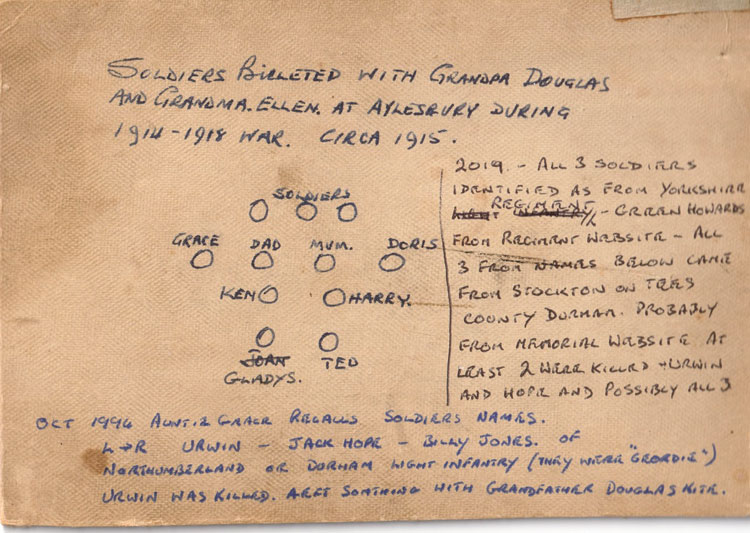 SOLDIERS BILLETED WITH GRANDPA DOUGLAS
AND GRANDMA. ELLEN. AT AYLESBURY DURING
1914-1918 WAR. CIRCA 1915.
SOLDIERS
GRACE DAD MUM. DORIS
KEN HARRY.
JOAN TED
GLADYS.
2019. - ALL 3 SOLDIERS
IDENTIFIED AS FROM YORKSHIRE
REGIMENT
LIGHT INFANTRY - GREEN HOWARDS
FROM REGIMENT WEBSITE - ALL
3 FROM NAMES BELOW CAME
FROM STOCKTON ON TEES
COUNTY DURHAM. PROBABLY
FROM MEMORIAL WEBSITE AT
LEAST 2 WERE KILLED - URWIN
AND HOPE AND POSSIBLY ALL 3
OCT 1994 AUNTIE GRACE RECALLS SOLDIERS NAMES.
L→R URWIN - JACK HOPE - BILLY JONES. OF
NORTHUMBERLAND OR DURHAM LIGHT INFANTRY (THEY WERE "GEORDIE")
URWIN WAS KILLED. SOMTHING WITH GRANDFATHER DOUGLAS KITE.